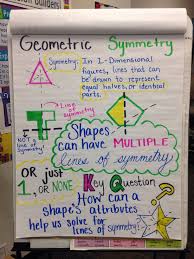 Geometric Symmetry
Symmetry: In 1-Dimensional
figures, lines that can
be drawn to represent
equal halves, or identical
parts.
Line of
symmetry
NOT line of
symmetry!
Shapes
can have MULTIPLE
lines of symmetry
OR just
1, or NONE
Key Question
How can a
shape's attributes
help us solve for
lines of symmetry?